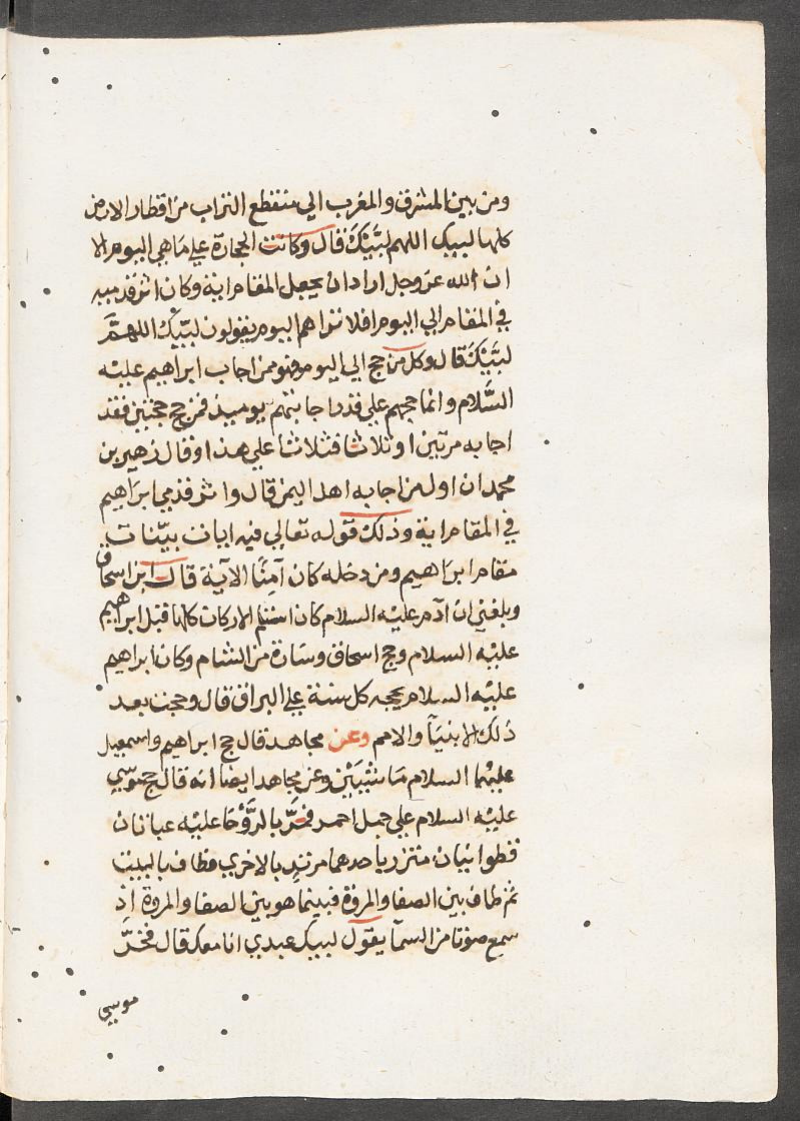 ومن بين المشرق والمغرب الي منقطع التراب من اقطار الارض
كلها لبيك اللهم لبَّيْكَ قال وكانت الحجارة علي ما هي اليوم الا
ان الله عز وجل اراد ان يجعل المقام اية وكان اثر قدميه
في المقام الي اليوم افلا تراهم اليوم يقولون لبّيْكَ اللهمَّ
لبَّيْكَ قال وكل من حج الي اليوم فهو ممن اجاب ابراهيم عليْه
السَّلام وانما حجهم علي قدر اجابتهم يوميذ فمن حج حجتين فقد
اجابه مرتين او ثلاثا فثلاثا علي هذا وقال زهير بن
محمد ان اول من اجابه اهل اليمن قال واثر قدمي ابراهيم
في المقام اية وذلك قوله تعالي فيه ايات بيّنات
مقام ابراهيم ومن دخله كان آمنًا الآية قال ابن اسحاق
وبلغني ان آدم عليه السلام كان استلم الاركان كلها قبل ابراهيم
عليْه السلام وحج اسحاق وسارة من الشام وكان ابراهيم
عليْه السلام يحجه كل سنة علي البراق قال وحجت بعد
ذلك الانبيآ والامم وعن مجاهد قال حج ابراهيم واسمعيل
عليْهما السلام مَاشيَيْن وعن مجاهد ايضا انه قال حج موسي
عليْه السلام علي جمل احمر فمَرَّ بالرَّوْحَا عليْه عبانان
قطوانيان متزر باحدهما مرتدٍ بالاخري فطاف بالبيت
ثم طاف بين الصفا والمروة فبينما هو بين الصفا والمروة اذ
سمع صوتا من السمآ يقول لبيك عبدي انا معك قال فخرَّ
موسي